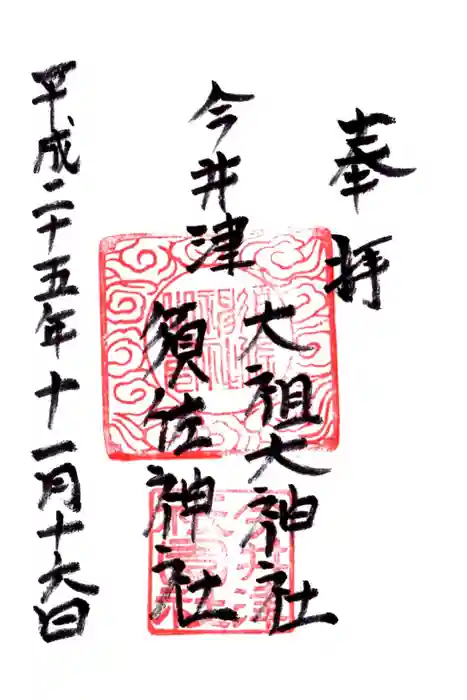 奉拝
今井津
大祖大神社
須佐神社
平成二十五年十一月十六日